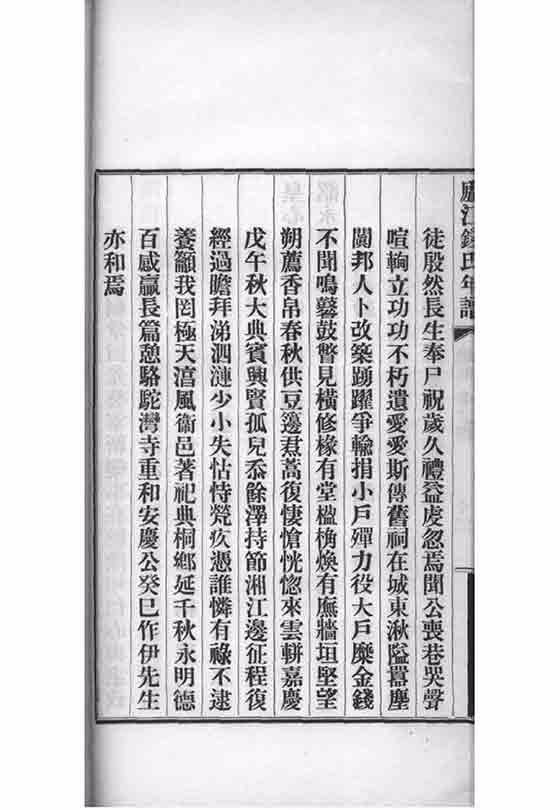 廬江錢氏年譜
徒殷然長生奉尸祝歲久禮益虔忽焉聞公喪巷哭聲
喧輷立功功不朽遺愛愛斯傳舊祠在城東湫隘囂塵
闐邦人卜改築踴躍爭輸捐小戶殫力役大戶糜金錢
不聞鳴鼛鼓瞥見橫修椽有堂楹桷煥有廡牆垣堅望
朔薦香帛春秋供豆籩焄蒿復悽愴恍惚來雲軿嘉慶
戊午秋大典賓興賢孤兒忝餘澤持節湘江邊征程復
經過瞻拜涕泗漣少小失怙恃煢疚憑誰憐有祿不逮
養籲我罔極天濤風衞邑著祀典桐鄉延千秋永明德
百感贏長篇憩駱駝灣寺重和安慶公癸巳作伊先生
亦和焉